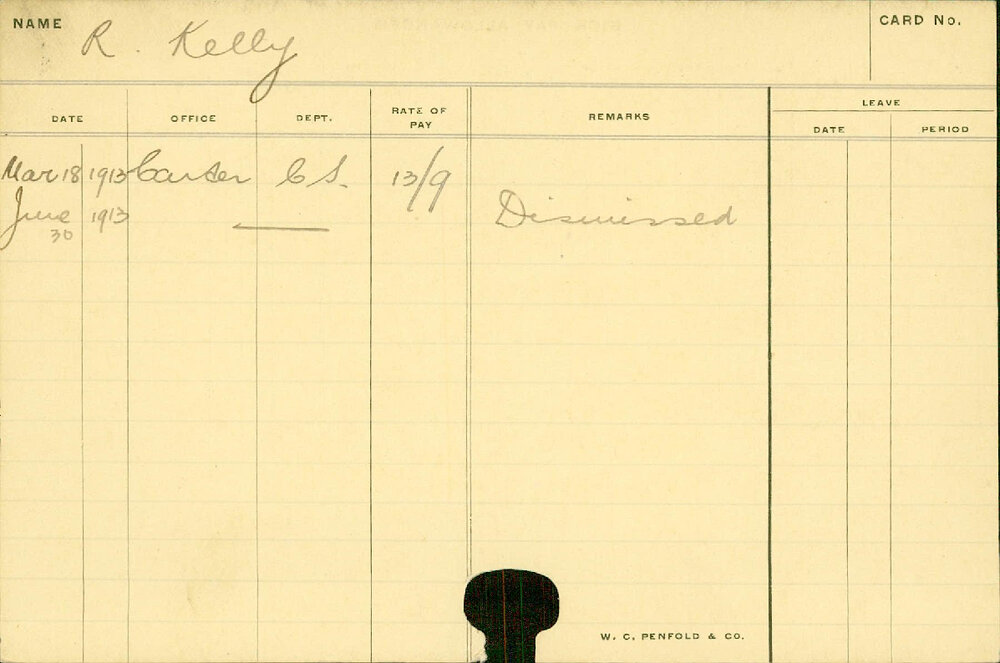 NAME R. Kelly CARD No.
DATE OFFICE DEPT. RATE OF PAY REMARKS LEAVE
DATE PERIOD
Mar 18 1913 Carter C S. 13/9
June 30 1913 Dismissed
W. C. PENFOLD & CO.